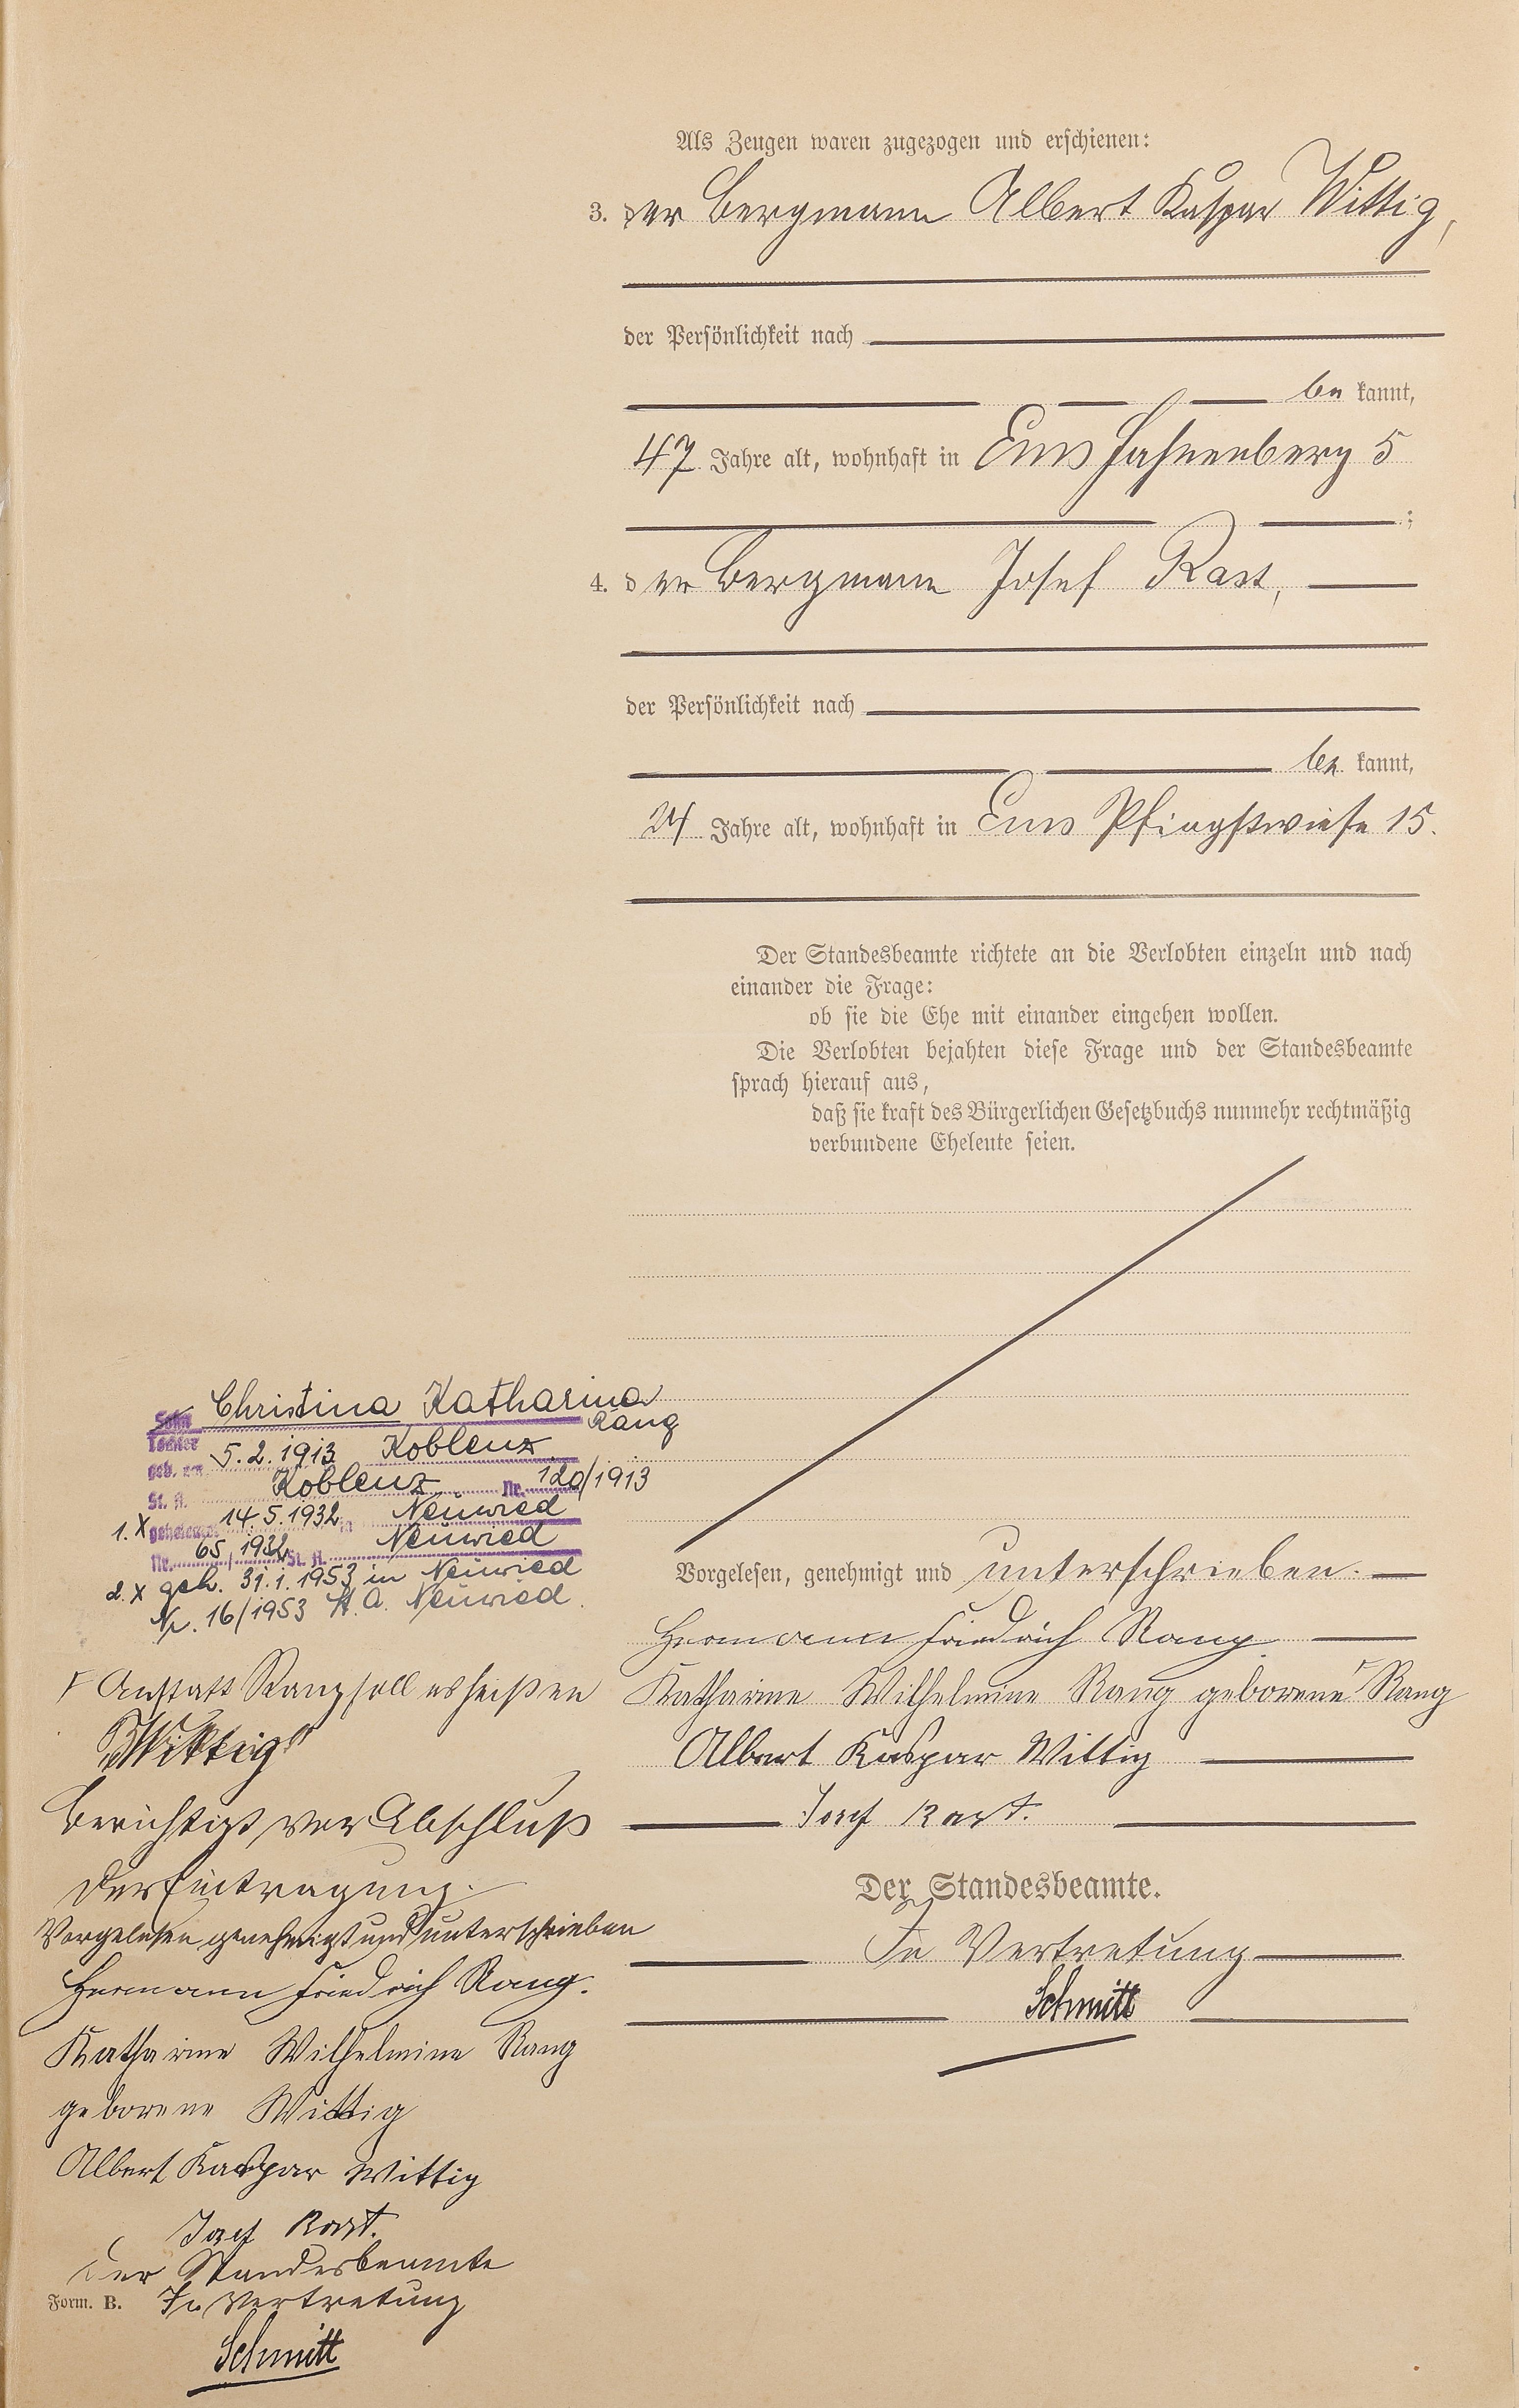 Als Zeugen waren zugezogen und erschienen:
3. der Bergmann Albert Kaspar Wittig,
der Persönlichkeit nach
be kannt,
47 Jahre alt, wohnhaft in Ems Hahnenberg 5
;
4. der Bergmann Josef Rast,
der Persönlichkeit nach
be kannt,
24 Jahre alt, wohnhaft in Ems Pfingstwiese 15.
Der Standesbeamte richtete an die Verlobten einzeln und nach
einander die Frage:
ob sie die Ehe mit einander eingehen wollen.
Die Verlobten bejahten diese Frage und der Standesbeamte
sprach hierauf aus,
daß sie kraft des Bürgerlichen Gesetzbuchs nunmehr rechtmäßig
verbundene Eheleute seien.
Vorgelesen, genehmigt und unterschrieben.
Hermann Friedrich Rang
Katharine Wilhelmine Rang geborene Rang
Albert Kaspar Wittig
Josef Rast.
Der Standesbeamte.
In Vertretung
Schmitt
Sohn Christina Katharina
Tochter Rang
geb. am 5.2.1913 Koblenz
St. A. Koblenz Nr. 120/1913
1. X geheiratet 14.5.1932 in Neuwied
Nr. 65/1932 St. A. Neuwied
2. X geh. 31.1.1953 in Neuwied
Nr. 16/1953 St. A. Neuwied.
Anstatt Rang soll es heißen
"Wittig"
Berichtigt vor Abschluß
der Eintragung.
Vorgelesen genehmigt und unterschrieben
Hermann Friedrich Rang.
Katharine Wilhelmine Rang
geborene Wittig
Albert Kaspar Wittig
Josef Rast.
Der Standesbeamte
In Vertretung
Form. B.
Schmitt